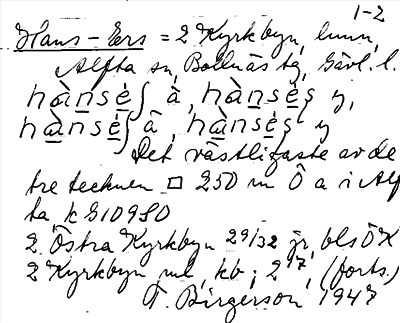 1-2
Hans-Ers = 2 Kyrkbyn, hmn,
Alfta sn, Bollnäs tg, Gävl. l.
hànsèʃ à, hànsès y,
hànsèʃ â, hànsès y
Det västligaste av de
tre tecknen □ 250 m Ö a i Alf
ta k G109SO
2 Östra Kyrkbyn 29/32 jr, bls ÖK
2 Kyrkbyn ml, kb; 2 17, (forts.)
T. Birgerson 1947